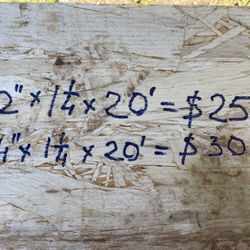 2" x 1 1/4 x 20' = $25
4" x 1 1/4 x 20' = $30